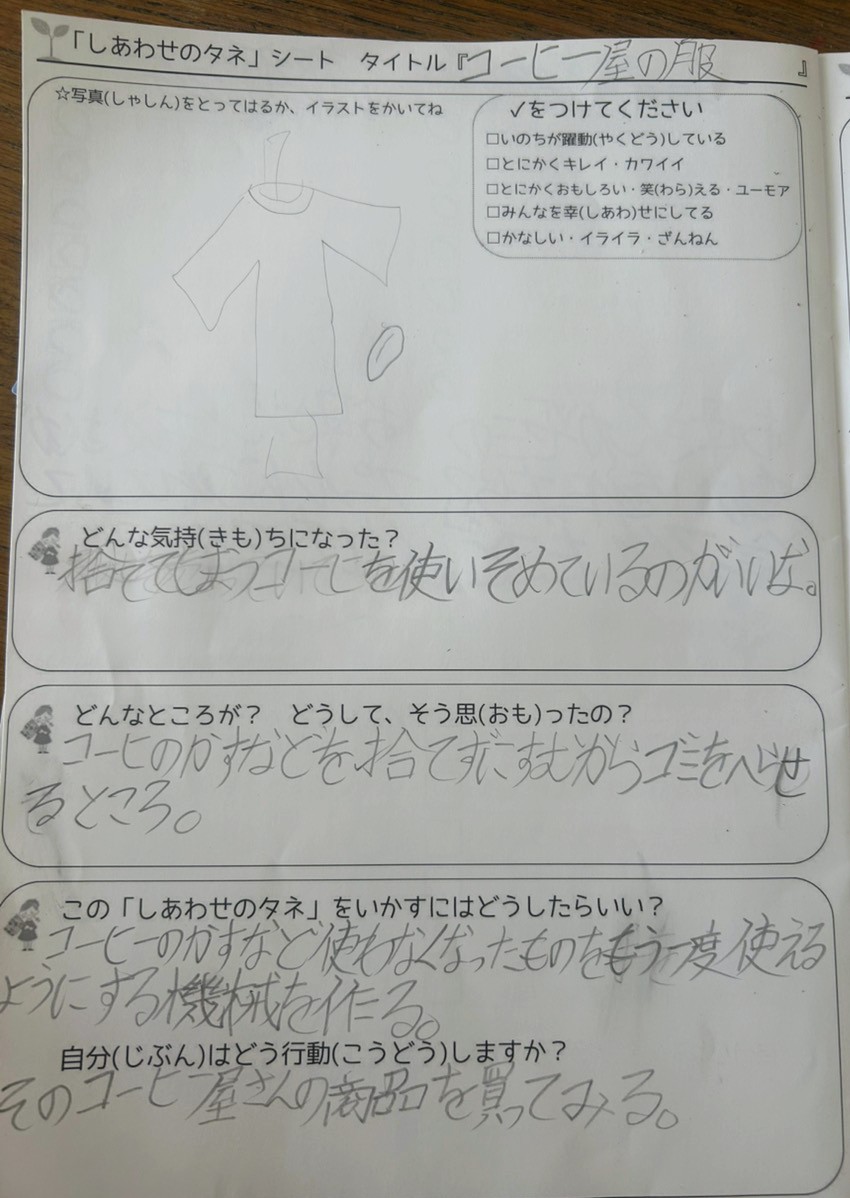 「しあわせのタネ」シート　タイトル『コーヒー屋の服』
☆写真(しゃしん)をとってはるか、イラストをかいてね
✓をつけてください
□いのちが躍動(やくどう)している
□とにかくキレイ・カワイイ
□とにかくおもしろい・笑(わら)える・ユーモア
□みんなを幸(しあわ)せにしてる
□かなしい・イライラ・ざんねん
どんな気持(きも)ちになった？
捨ててしまうコーヒーを使いそめているのがいいな。
どんなところが？　どうして、そう思(おも)ったの？
コーヒのかすなどを捨てずにすむからゴミをへらせ
るところ。
この「しあわせのタネ」をいかすにはどうしたらいい？
コーヒーのかすなど使わなくなったものをもう一度使える
ようにする機械を作る。
自分(じぶん)はどう行動(こうどう)しますか？
そのコーヒー屋さんの商品を買ってみる。